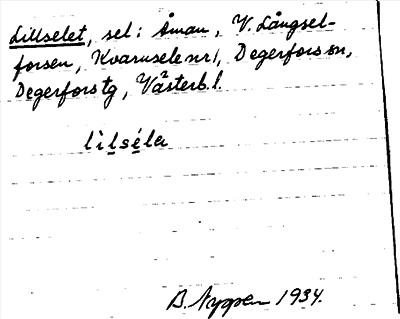 Lillselet, sel i Åman, V. Långsel-
forsen, Kvarnsele nr 1, Degerfors sn,
Degerfors tg, Västerb. l.
lìlséla
B. Nyman 1934.